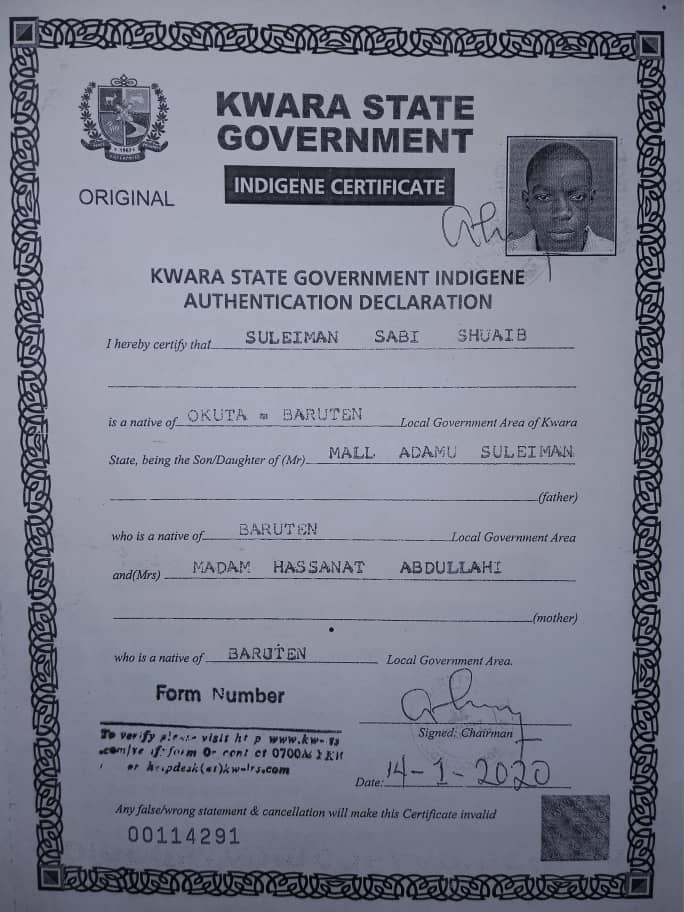 KWARA STATE
GOVERNMENT
INDIGENE CERTIFICATE
ORIGINAL
KWARA STATE GOVERNMENT INDIGENE
AUTHENTICATION DECLARATION
I hereby certify that SULEIMAN SABI SHUAIB
is a native of OKUTA = BARUTEN Local Government Area of Kwara
State, being the Son/Daughter of (Mr) MALL ADAMU SULEIMAN
(father)
who is a native of BARUTEN Local Government Area
and(Mrs) MADAM HASSANAT ABDULLAHI
(mother)
who is a native of BARUTEN Local Government Area.
Form Number
Signed: Chairman
To verify please visit www.kw-irs
.com/ or contact
or helpdesk(at)kw-irs.com
Date: 14-1-2020
Any false/wrong statement & cancellation will make this Certificate invalid
00114291